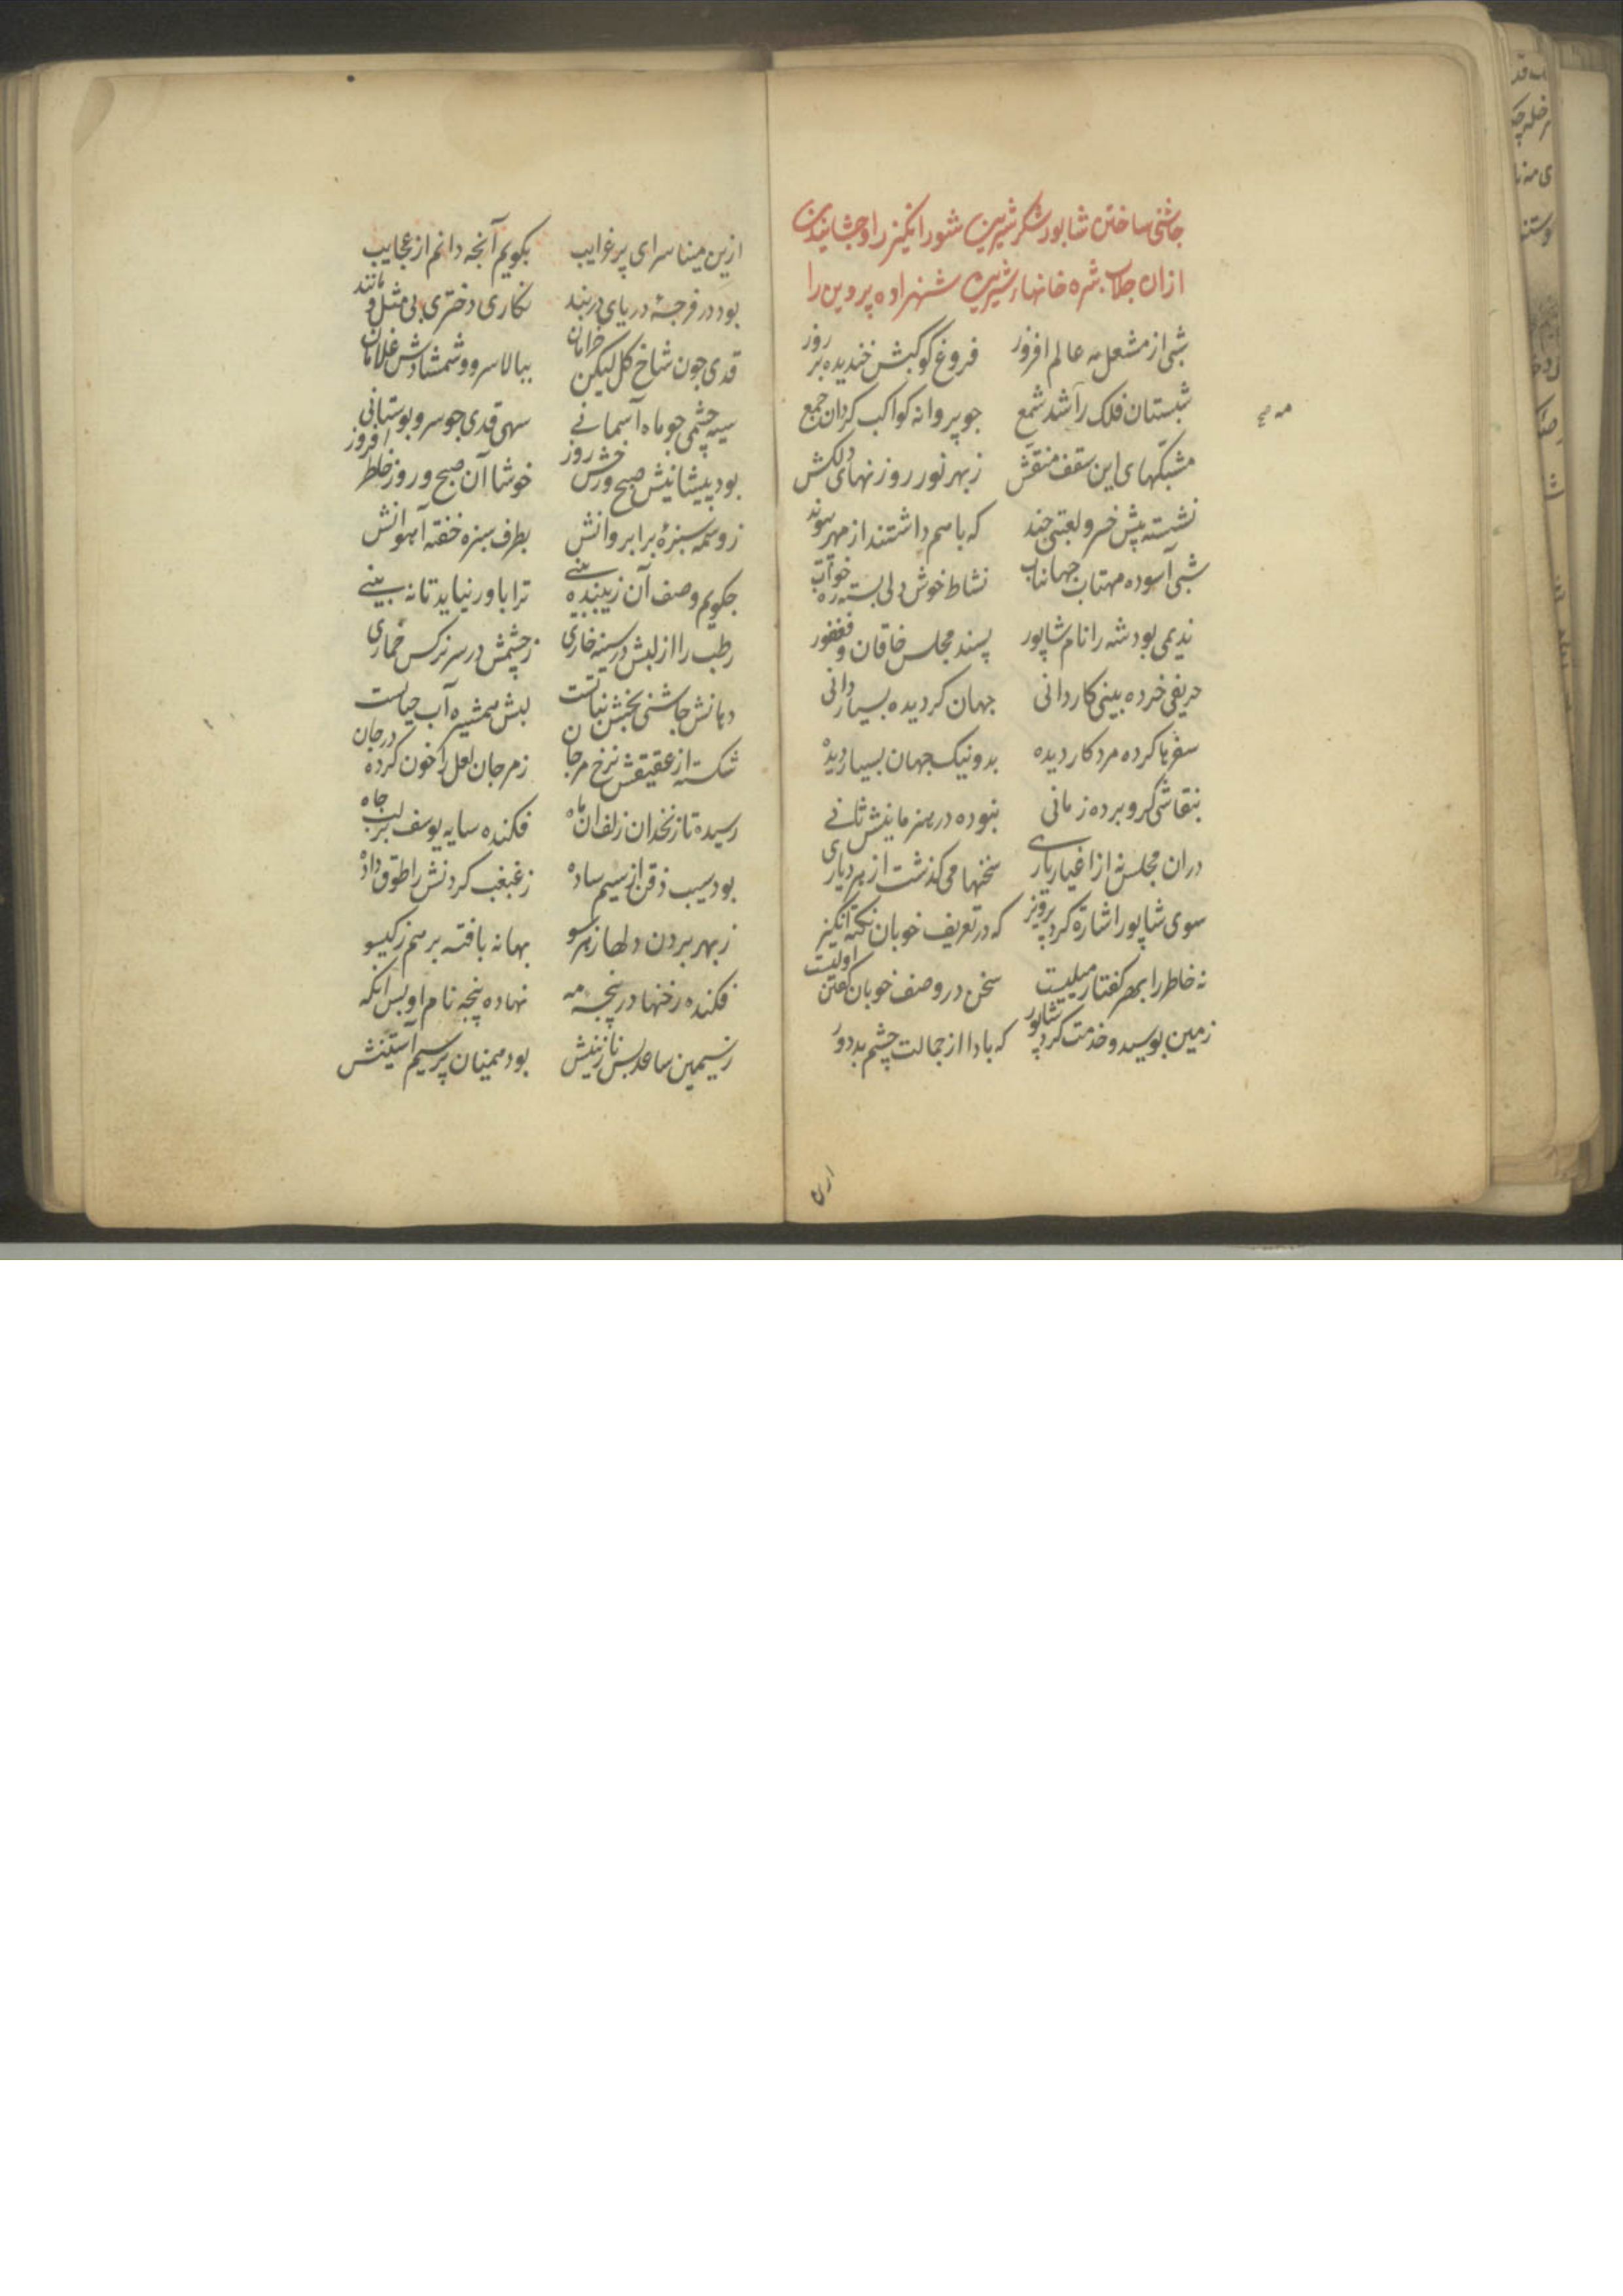 جاشنی ساختن شابور شکر شیرین شور انکیز را و جشانیدن
ازان جلاب شره خانهاء شیرین شهزاده پروین را
شبی از مشعل مه عالم افروز فروغ کوکبش خندیده بر روز
شبستان فلک را شد شمع جو پروانه کواکب کردان جمع
مشبکهای این سقف منقش زبهر نور روزنهای دلکش
نشسته پیش خسرو لعبتی جند که باسم داشتند از مهر پیوند
شبی آسوده مهتاب جهانتاب نشاط خوش دلی بسته ره خواب
ندیمی بود شه را نام شاپور پسند مجلس خاقان و فغفور
حریفی خرده بینی کاردانی جهان کردیده بسیار دانی
سفرها کرده مرد کار دیده بد و نیک جهان بسیار دیده
بنقاشی کرو برده زمانی نبوده در هنر مانیش ثانی
دران مجلس نه از اغیار یاری سخنها می کذشت از هر دیاری
سوی شاپور اشارة کرد پرویز که در تعریف خوبان نکته انکیز
نه خاطر را بهر کفتار میلیست سخن در وصف خوبان کفتن اولیست
زمین بوسید و خدمت کرد شاپور که بادا از جمالت چشم بد دور
ازین مینا سرای پر غرایب بکویم آنجه دانم از عجایب
بود در فرجهٔ دریای دربند نکاری دختری بی مثل و مانند
قدی جون شاخ کل لیکن خرامان ببالا سرو و شمشادش غلامان
سیه چشمی جو ماه آسمانی سهی قدی جو سرو بوستانی
بود پیشانیش صبح و رخش روز خوشا آن صبح و روز خاطر افروز
ز وسمه سبزهٔ بر ابروانش بطرف سبزه خفته آهوانش
جکویم وصف آن زیبنده بینی ترا باور نیاید تا نه بینی
رطب را از لبش در سینه خاری زچشمش در سر نرکس خماری
دهانش جاشنی بخش نباتست لبش همشیره آب حیاتست
شکسته از عقیقش نرخ مرجان زمرجان لعل را خون کرده در جان
رسیده تا زنخدان زلف ان ماه فکنده سایه یوسف بر لب جاه
بود سیب ذقن از سیم ساده زغبغب کردنش را طوق داده
زبهر بردن دلها ز هر سو بهانه بافته بر هم ز کیسو
فکنده رخنها در پنجه مه نهاده پنجه نام او بس انکه
زسیمین ساعد بس نازنینش بود همیان پر سیم آستینش